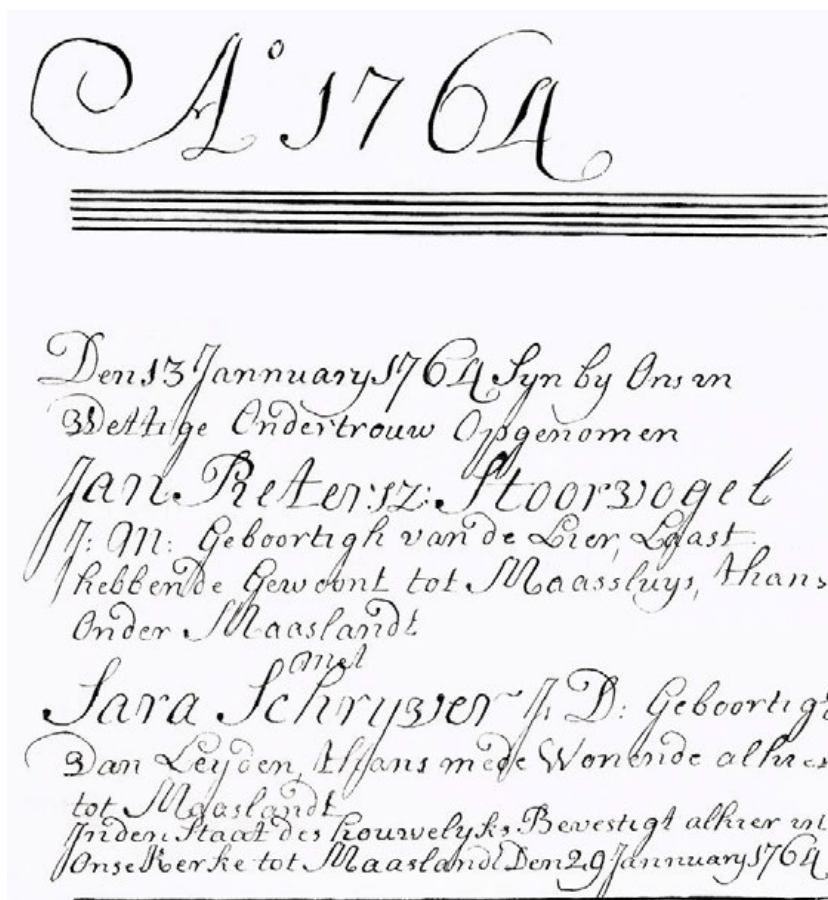 A° 1764
Den 13 Jannuary 1764 Syn by Ons in
Wettige Ondertrouw Opgenomen
Jan Pietersz: Stoorvogel
J: M: Geboortigh van de Lier, Laast
hebbende Gewoont tot Maassluys, thans
Onder Maaslandt
Met
Sara Schryver J: D: Geboortigh
Van Leyden, thans mede Wonende alhier
tot Maaslandt
Inden Staat des houwelyks Bevestigt alhier in
Onse Kerke tot Maaslandt Den 29 Jannuary 1764